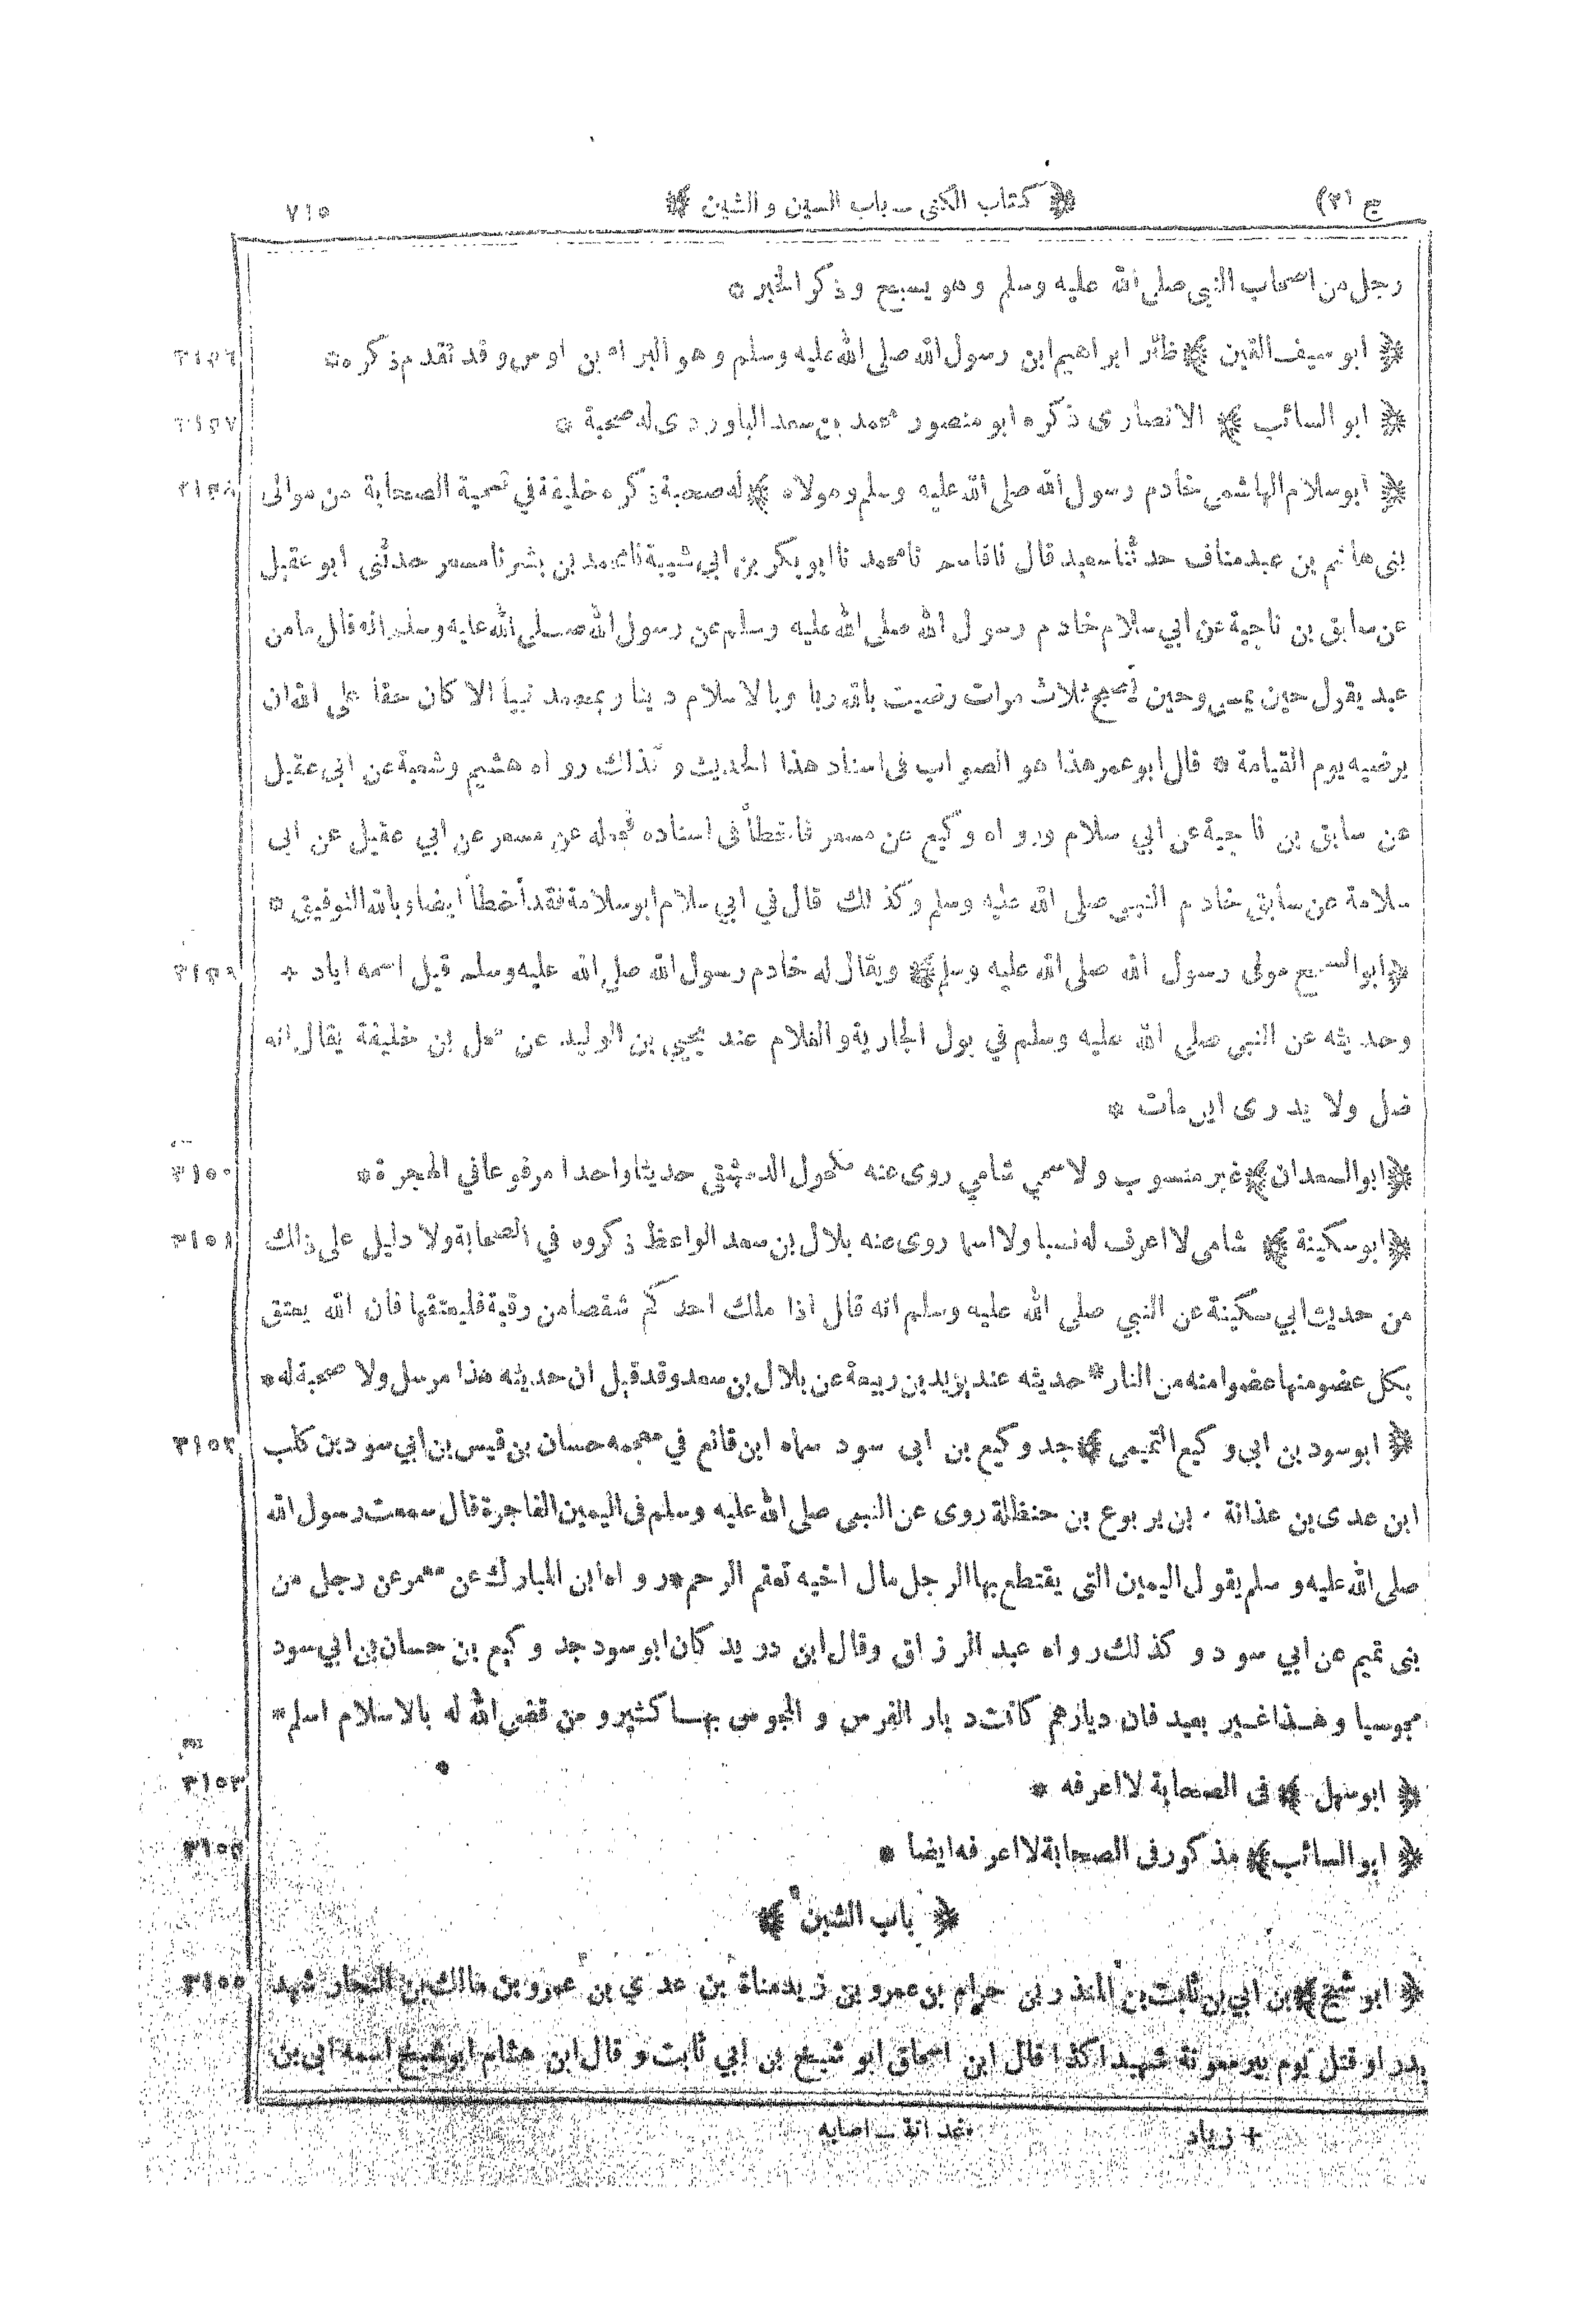 ج (٢) ﴿ كتاب الكنى ـ باب السين والشين ﴾ ٧١٥
رجل من اصحاب النبى صلى الله عليه وسلم وهو يسبح وذكر الخبر *
﴿ ابو سيف القين ﴾ ظئر ابراهيم ابن رسول الله صلى الله عليه وسلم وهو البراء بن اوس وقد تقدم ذكره * ٣١٤٦
﴿ ابو السائب ﴾ الانصارى ذكره ابو منصور محمد بن سعد الباوردى له صحبة * ٣١٤٧
﴿ ابو سلام الهاشمى خادم رسول الله صلى الله عليه وسلم ومولاه ﴾ له صحبة ذكره خليفة في تسمية الصحابة من موالى ٣١٤٨
بنى هاشم بن عبد مناف حدثنا سعيد قال نا قاسم نا محمد نا ابو بكر بن ابي شيبة نا محمد بن بشر نا مسعر حدثنى ابو عقيل
عن سابق بن ناجية عن ابي سلام خادم رسول الله صلى الله عليه وسلم عن رسول الله صلى الله عليه وسلم انه قال ما من
عبد يقول حين يمسى وحين يصبح ثلاث مرات رضيت بالله ربا وبالاسلام دينا وبمحمد نبيا الا كان حقا على الله ان
يرضيه يوم القيامة * قال ابو عمر هذا هو الصواب فى اسناد هذا الحديث وكذلك رواه هشيم وشعبة عن ابى عقيل
عن سابق بن ناجية عن ابي سلام ورواه وكيع عن مسعر فاخطأ فى اسناده فجعله عن مسعر عن ابي عقيل عن ابى
سلامة عن سابق خادم النبى صلى الله عليه وسلم وكذلك قال في ابي سلام ابو سلامة فقد أخطأ ايضا وبالله التوفيق *
﴿ ابو السمح مولى رسول الله صلى الله عليه وسلم ﴾ ويقال له خادم رسول الله صلى الله عليه وسلم قيل اسمه اياد + ٣١٤٩
وحديثه عن النبى صلى الله عليه وسلم في بول الجارية والغلام عند يحيى بن الوليد عن محل بن خليفة يقال انه
ضل ولا يدرى اين مات *
﴿ ابو السعدان ﴾ غير منسوب ولا سمي شامي روى عنه مكحول الدمشقى حديثا واحدا مرفوعا في الهجرة * ٣١٥٠
﴿ ابو سكينة ﴾ شامى لا اعرف له نسبا ولا اسما روى عنه بلال بن سعد الواعظ ذكروه في الصحابة ولا دليل على ذلك ٣١٥١
من حديث ابي سكينة عن النبي صلى الله عليه وسلم انه قال اذا ملك احدكم شقصا من رقبة فليعتقها فان الله يعتق
بكل عضو منها عضوا منه من النار * حديثه عند يزيد بن ربيعة عن بلال بن سعد وقد قيل ان حديثه هذا مرسل ولا صحبة له *
﴿ ابو سود بن ابي وكيع التميمى ﴾ جد وكيع بن ابى سود سماه ابن قانع في معجمه حسان بن قيس بن ابي سود بن كلب ٣١٥٢
ابن عدى بن عذانة ٠ بن يربوع بن حنظلة روى عن النبى صلى الله عليه وسلم فى اليمين الفاجرة قال سمعت رسول الله
صلى الله عليه وسلم يقول اليمين التى يقتطع بها الرجل مال اخيه تعقم الرحم * رواه ابن المبارك عن معمر عن رجل من
بنى تميم عن ابي سود وكذلك رواه عبد الرزاق وقال ابن دريد كان ابو سود جد وكيع بن حسان بن ابي سود
مجوسيا وهذا غير بعيد فان ديارهم كانت ديار الفرس والمجوس بها كثير ومن قضى الله له بالاسلام اسلم *
﴿ ابو سهل ﴾ فى الصحابة لا اعرفه * ٣١٥٣
﴿ ابو السائب ﴾ مذكور فى الصحابة لا اعرفه ايضا * ٣١٥٤
﴿ باب الشين ﴾
﴿ ابو شيخ ﴾ بن ابي بن ثابت بن المنذر بن حرام بن عمرو بن زيد مناة بن عدي بن عمرو بن مالك بن النجار شهد ٣١٥٥
بدرا وقتل يوم بير معونة شهيدا كذا قال ابن اسحاق ابو شيخ بن ابي ثابت وقال ابن هشام ابو شيخ اسمه ابى بن
+ زياد ٠ غدانة ـ اصابه